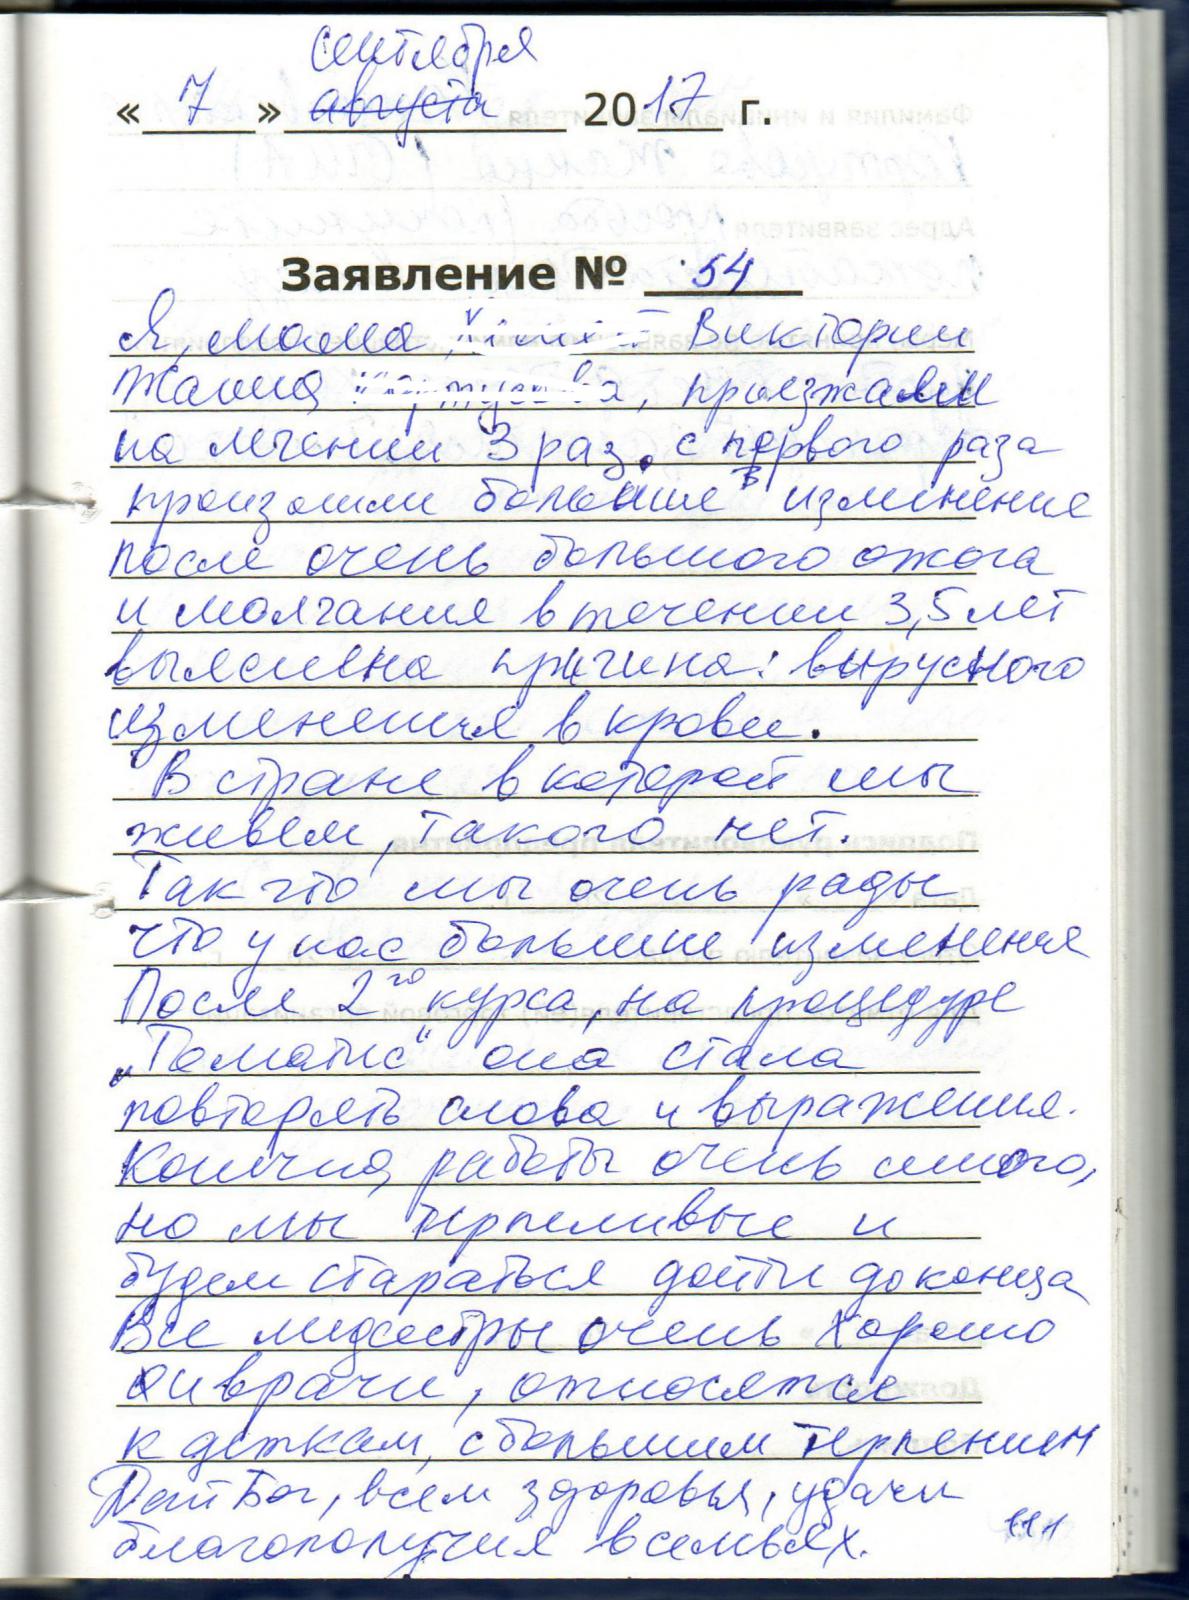 сентября
« 7 » августа 2017 г.
Заявление № 54
Я, мама, Виктории
Жанна, приезжали
на лечении 3 раз. с первого раза
произошли большие в изминение
после очень большого ожога
и молчания в течении 3,5 лет
выяснена причина: вырусного
изменения в крове.
В стране в которой мы
живем, такого нет.
Так что мы очень рады
что у нас большие изменения
После 2го курса, на процедуре
„Томатис" она стала
повторять слова и выражения.
Конечно, работы очень много,
но мы терпеливые и
будем стараться дойти до конца
Все медсестры очень хорошо
и врачи, относятся
к деткам, с большим терпением
Дай Бог, всем здоровья, удачи
благополучия в семьях.
111